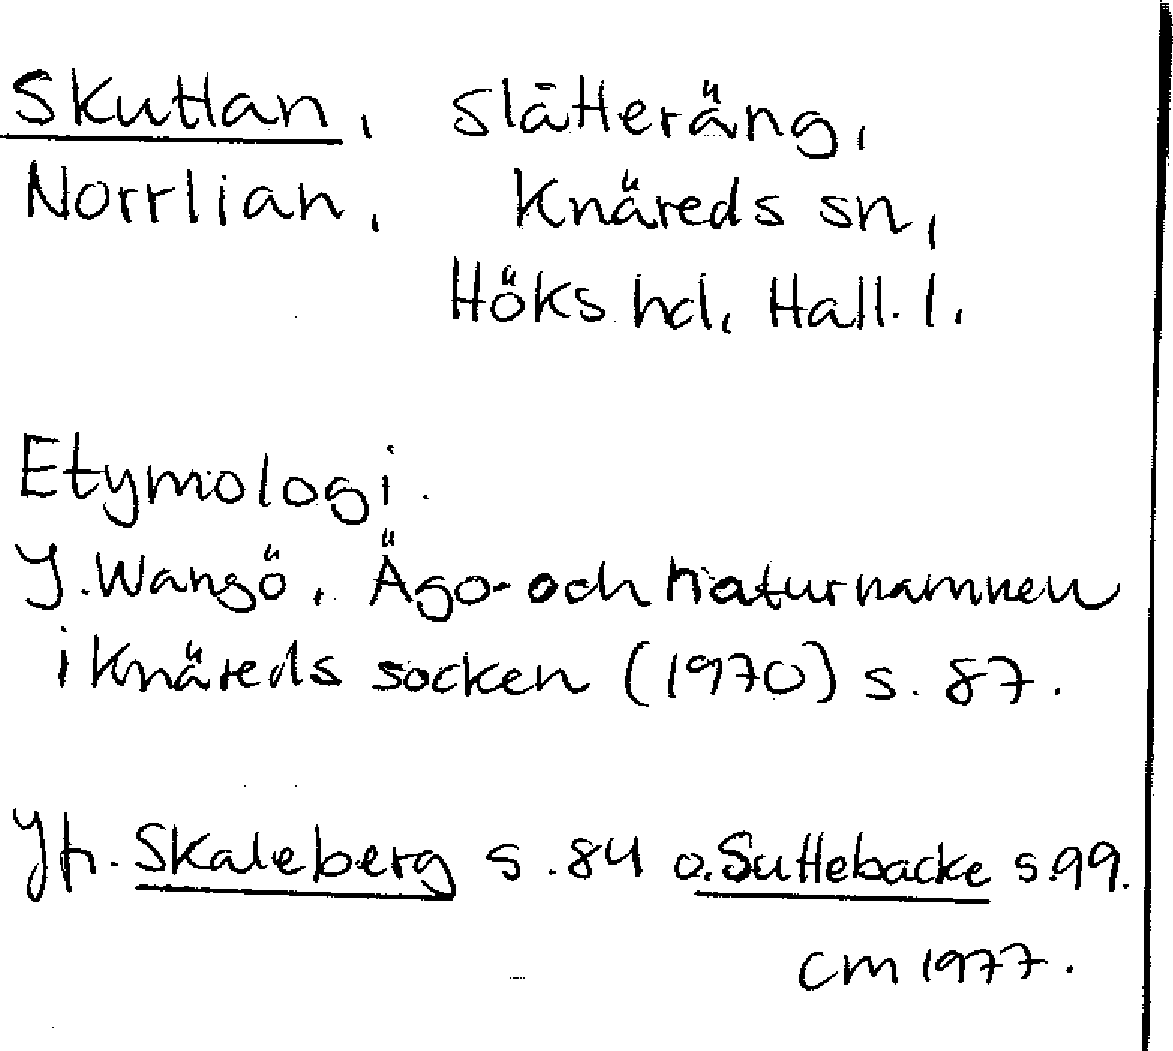 Skuttan, slåtteräng,
Norrlian, Knäreds sn,
Höks hd, Hall. l.
Etymologi.
J. Wangö, Ägo- och naturnamnen
i Knäreds socken (1970) s. 87.
Jfr. Skaleberg s. 84 o. Suttebacke s. 99.
CM 1977.